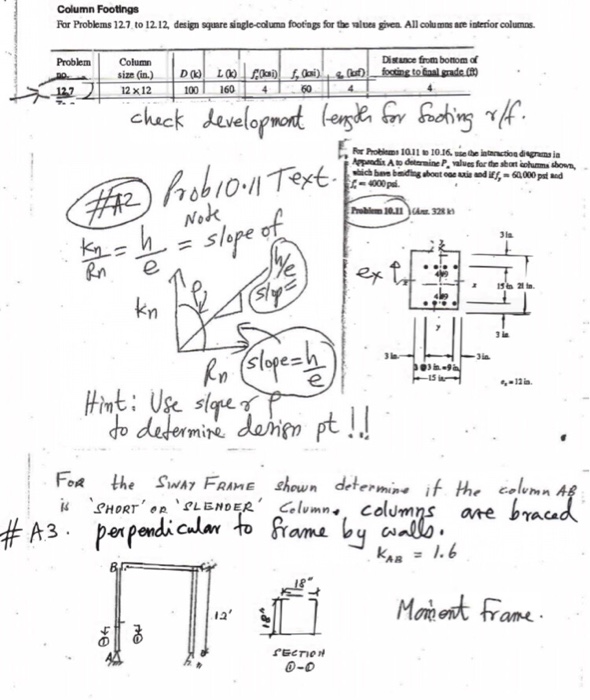 Column Footings
For Problems 12.7 to 12.12, design square single-column footings for the values given. All columns are interior columns.
Problem no. Column size (in.) D (k) L (k) f'c (ksi) fy (ksi) qa (ksf) Distance from bottom of footing to final grade (ft)
12.7 12 × 12 100 160 4 60 4 4
check development length for footing r/f.
For Problems 10.11 to 10.16, use the interaction diagrams in
Appendix A to determine Pn values for the short columns shown,
which have bending about one axis and if fy = 60,000 psi and
f'c = 4000 psi.
Problem 10.11 (Ans. 328 k)
#A2 Prob 10.11 Text.
Note
Kn/Rn = h/e = slope of
h/e
slope=
kn
ρ
Rn
slope = h/e
ex
4#9
4#9
x
y
3 in.
15 in. 21 in.
3 in.
3 in.
3 in.
3 @ 3 in. = 9 in.
15 in.
ex = 12 in.
Hint: Use slope & ρ
to determine design pt !!
FOR the SWAY FRAME shown determine if the column AB
is 'SHORT' OR 'SLENDER' Column. columns are braced
# A3. perpendicular to frame by walls.
KAB = 1.6
B
A
12'
18"
18"
SECTION
①-①
Moment frame.